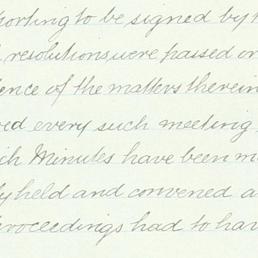 porting to be signed by
resolutions, were passed or
ence of the matters therein
ed every such meeting
ch Minutes have been m
ly held and convened a
roceedings had to hav